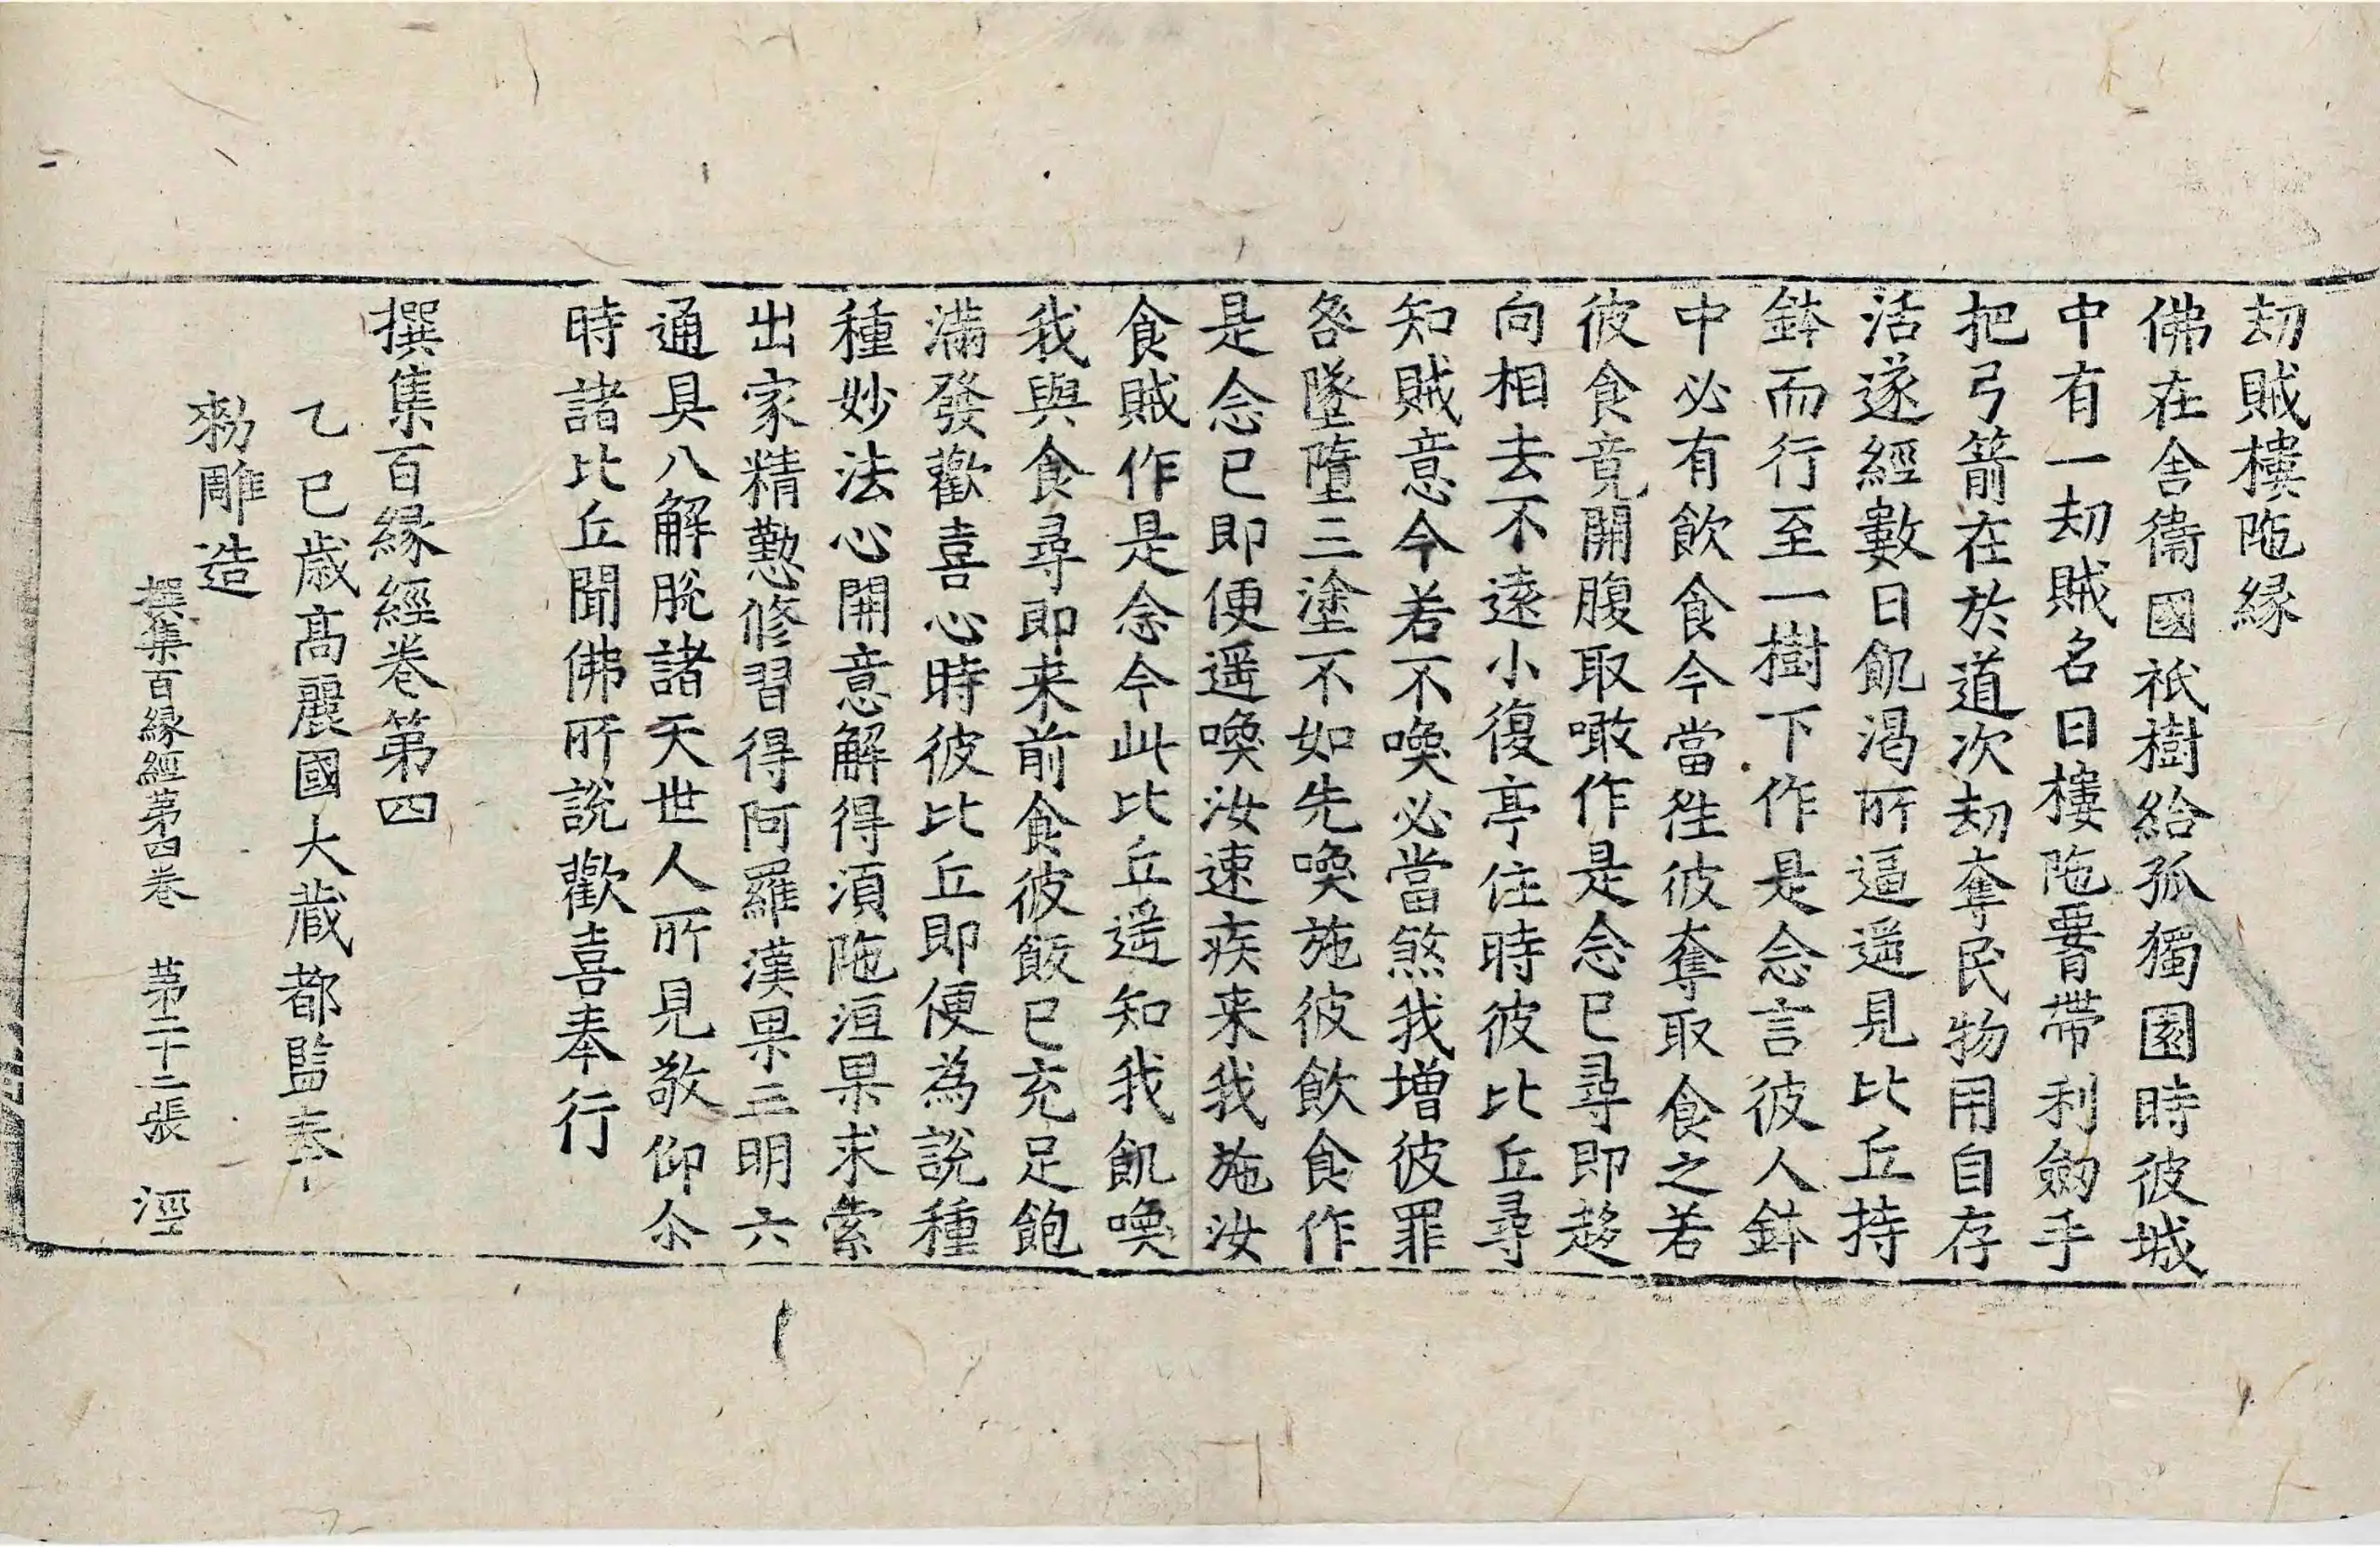 劫賊樓陁縁
佛在舍衞國祇樹給孤獨園時彼城
中有一劫賊名曰樓陁𦝫帶利劒手
把弓箭在於道次劫奪民物用自存
活遂經數日飢渴所逼遥見比丘持
鉢而行至一樹下作是念言彼人鉢
中必有飲食今當往彼奪取食之若
彼食竟開腹取噉作是念已尋即趍
向相去不遠小復亭住時彼比丘尋
知賊意今若不喚必當煞我增彼罪
咎墜墮三塗不如先喚施彼飲食作
是念已即便遥喚汝速疾来我施汝
食賊作是念今此比丘遥知我飢喚
我與食尋即来前食彼飯已充足飽
滿發歡喜心時彼比丘即便為說種
種妙法心開意解得湏陁洹果求索
出家精懃修習得阿羅漢果三明六
通具八解脫諸天世人所見敬仰尒
時諸比丘聞佛所說歡喜奉行
撰集百縁經卷第四
乙巳歲髙麗國大藏都監奉
勑雕造
撰集百縁經第四卷 第二十二張 涇